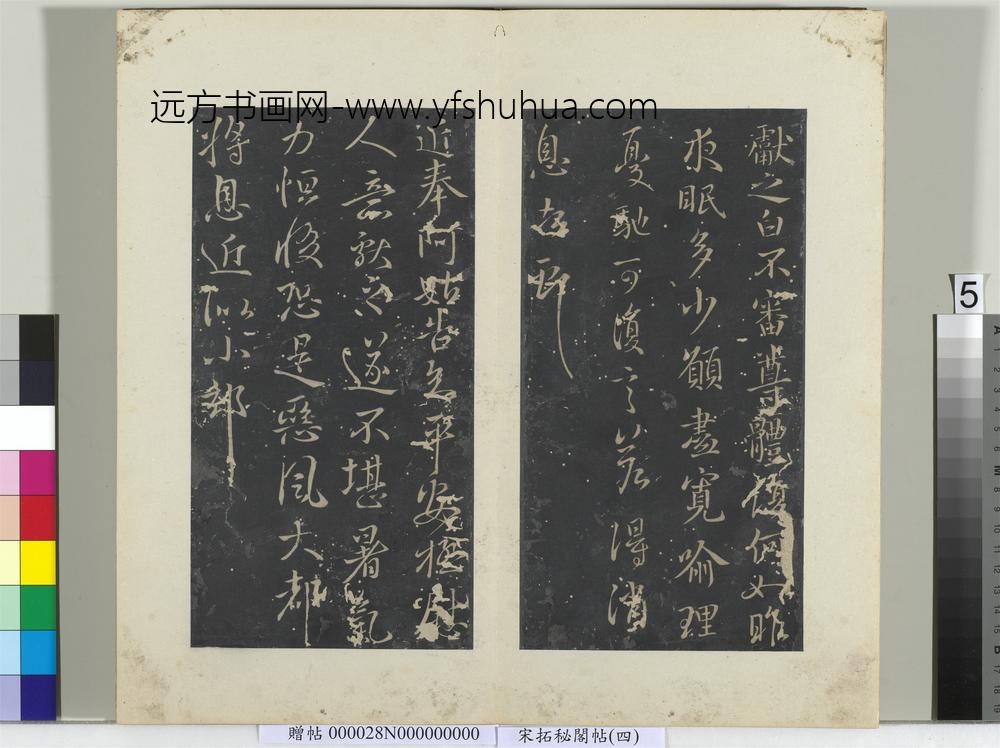 远方书画网-www.yfshuhua.com
獻之白不審尊體復何如昨
來眠多少願盡寬喻理
憂馳可復言若得消
息
近奉阿姑告云平安極慰
人意獻之遂不堪暑氣
力恒惙恐是惡風大都
將息近似小卻
5
贈帖 000028N000000000
宋拓秘閣帖(四)